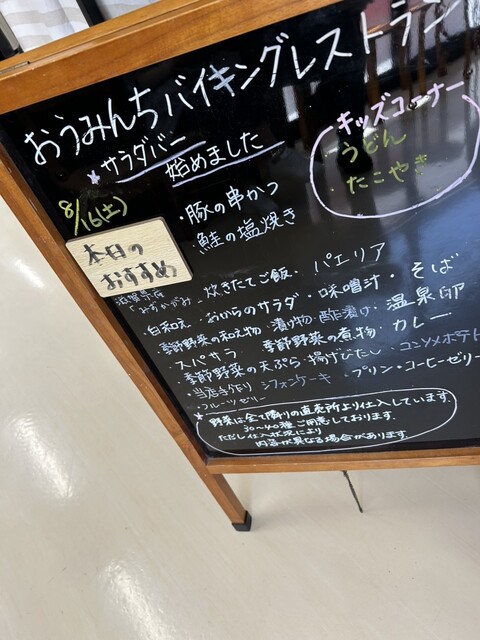 おうみんちバイキングレストラン
★サラダバー 始めました
キッズコーナー
・うどん
・たこやき
8/16(土)
本日の
おすすめ
・豚の串かつ
・鮭の塩焼き
滋賀県産
「みずかがみ」炊きたてご飯・パエリア
・白和え・おからのサラダ・味噌汁・そば
・季節野菜の和え物・漬け物・酢漬け・温泉卵
・スパサラ 季節野菜の煮物・カレー
・季節野菜の天ぷら・揚げびたし・コンソメポテト
・当店手作り シフォンケーキ・プリン・コーヒーゼリー
・フルーツゼリー
★野菜は全て隣りの直売所より仕入しています。
30〜40種ご用意しております。
ただし仕入状況により
内容が異なる場合があります。